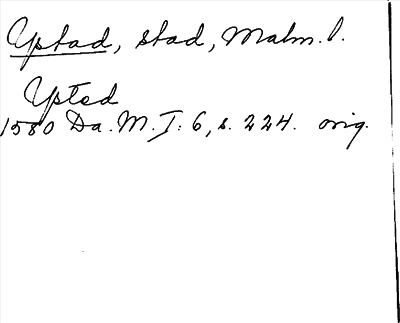 Ystad, stad, Malm. l.
Ysted
1580 Da. M. I: 6, s. 224. orig.